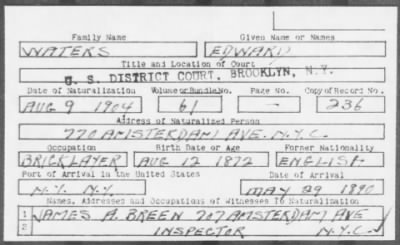 Family Name Given Name or Names
WATERS EDWARD
Title and Location of Court
U. S. DISTRICT COURT, BROOKLYN, N.Y.
Date of Naturalization Volume or Bundle No. Page No. Copy of Record No.
AUG 9 1904 61 - 236
Address of Naturalized Person
770 AMSTERDAM AVE. N.Y.C.
Occupation Birth Date or Age Former Nationality
BRICKLAYER AUG 12 1872 ENGLISH
Port of Arrival in the United States Date of Arrival
N.Y. N.Y. MAY 29 1890
Names, Addresses and Occupations of Witnesses To Naturalization
1 JAMES A. BREEN 707 AMSTERDAM AVE
2 INSPECTOR N.Y.C.